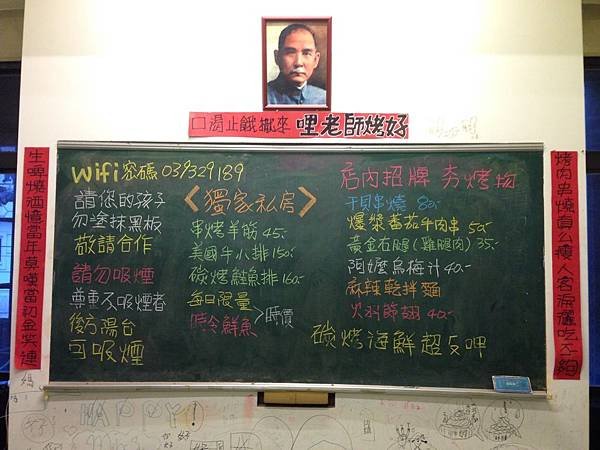 口渴止餓攤來 哩老師烤好
生啤燒酒憶當年莫嘆當初金榮連
烤肉串燒真公榱人客淚灑吃ㄅ細
wifi 密碼 039329189
請您的孩子
勿塗抹黑板
敬請合作
請勿吸煙
尊重不吸煙者
後方陽台
可吸煙
<獨家私房>
串烤羊筋 45.
美國牛小排 150.
碳烤鯰魚排 160.
每日限量
時令鮮魚 >時價
店內招牌 夯烤物
干貝串燒 80.
爆漿番茄牛肉串 50.
黃金石腿(雞腿肉) 35.
阿嬤烏梅汁 40.
麻辣乾拌麵
火羽節翅 40.
碳烤海鮮超ㄆ呷
HAPPY!